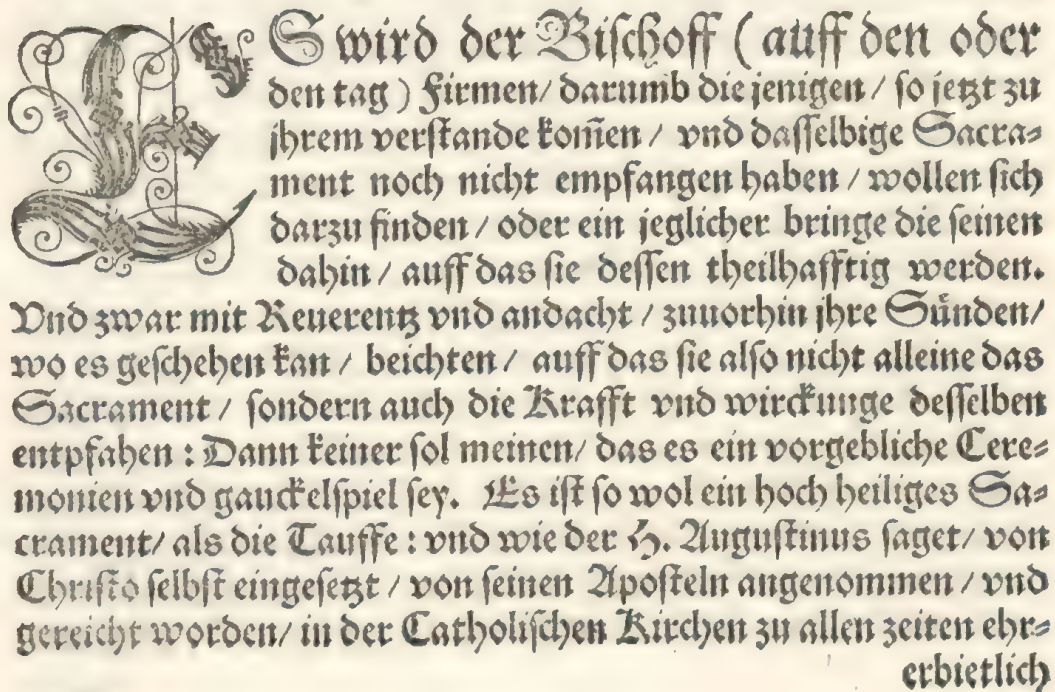 ES wird der Biſchoff (auff den oder
den tag) Firmen/ darumb die jenigen / ſo jetzt zu
jhrem verſtande kom̃en / vnd daſſelbige Sacra⸗
ment noch nicht empfangen haben / wollen ſich
darzu finden / oder ein jeglicher bringe die ſeinen
dahin / auff das ſie deſſen theilhafftig werden.
Vnd zwar mit Reuerentz vnd andacht / zuuorhin jhre Sünden/
wo es geſchehen kan / beichten / auff das ſie alſo nicht alleine das
Sacrament / ſondern auch die Krafft vnd wirckunge deſſelben
entpfahen : Dann keiner ſol meinen/ das es ein vorgebliche Cere⸗
monien vnd gauckelſpiel ſey. Es iſt ſo wol ein hoch heiliges Sa⸗
crament/ als die Tauffe : vnd wie der H. Auguſtinus ſaget/ von
Chriſto ſelbſt eingeſetzt / von ſeinen Apoſteln angenommen / vnd
gereicht worden/ in der Catholiſchen Kirchen zu allen zeiten ehr⸗
erbietlich